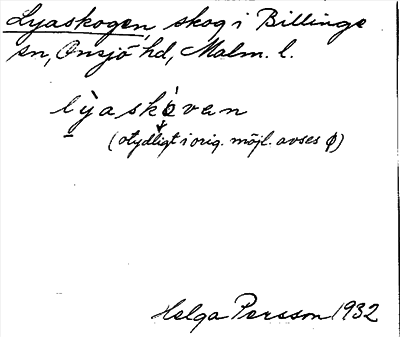 Lyaskogen, skog i Billinge
sn, Onsjö hd, Malm. l.
lỳaskòvan
(otydligt i orig. möjl. avses ϕ)
Helga Persson 1932